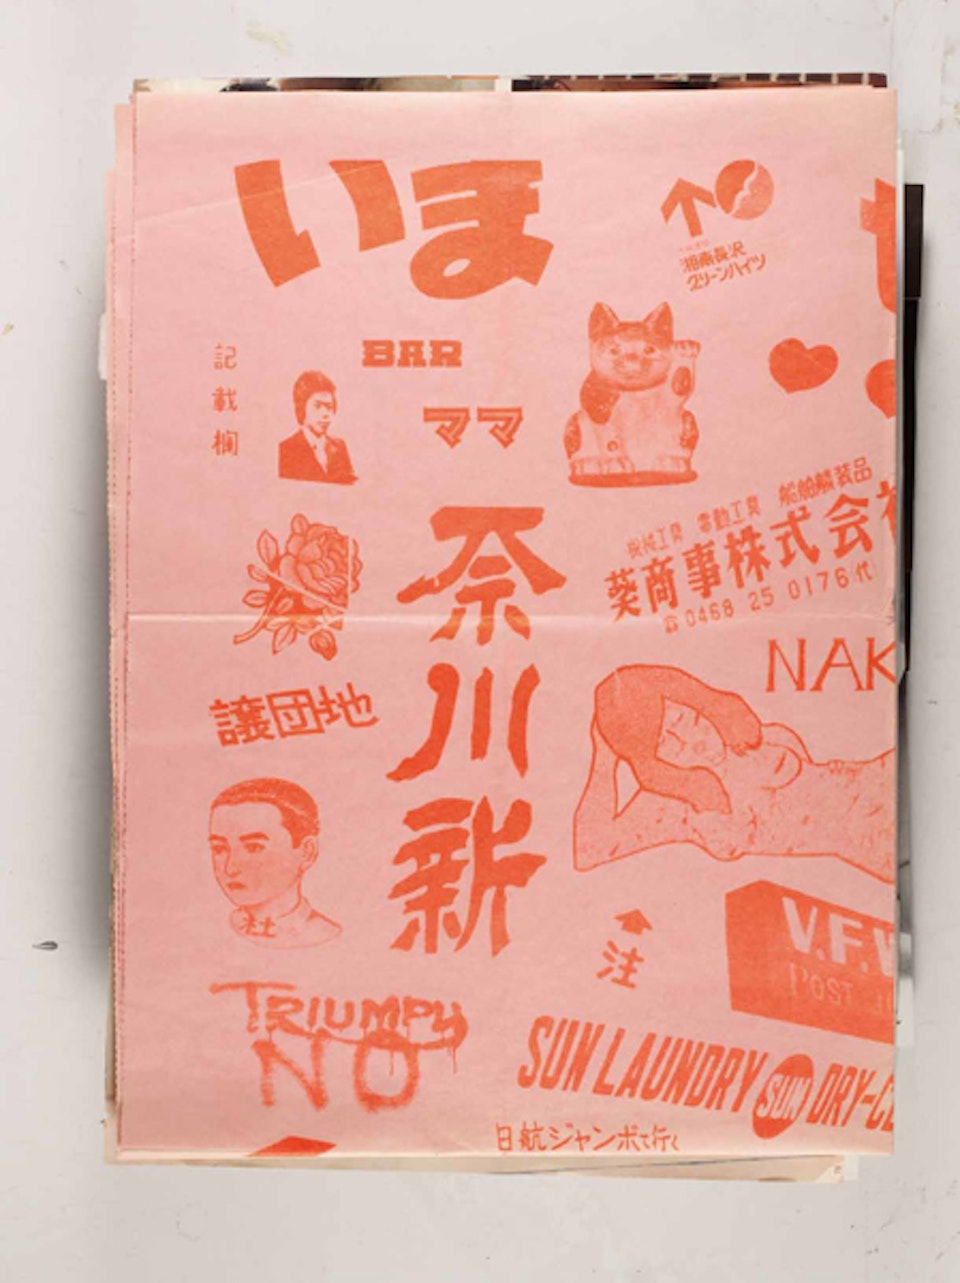 いま
湘南長沢
グリーンハイツ
記載欄
BAR
ママ
機械工具 電動工具 船舶艤装品
葵商事株式会
☎0468 25 0176(代)
奈川新
NAK
譲団地
社
V.F.W
POST
注
TRIUMPH
NO
SUN LAUNDRY SUN DRY-CL
日航ジャンボで行く